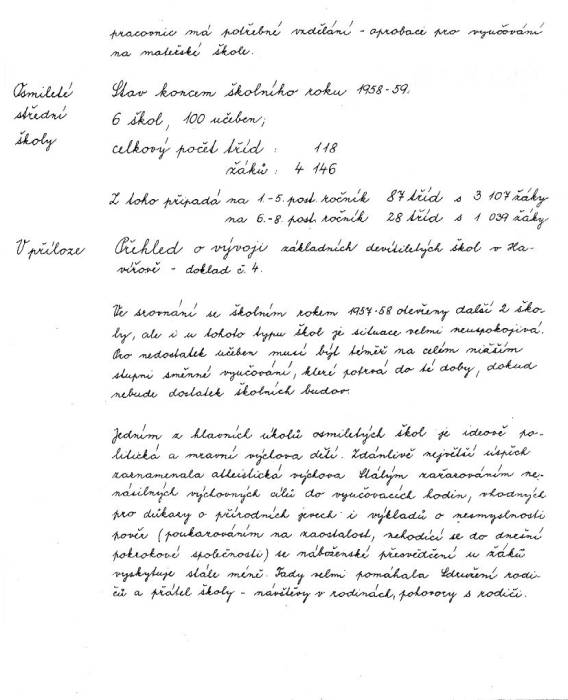 pracovnic má potřebné vzdělání - aprobace pro vyučování
na mateřské škole.
Osmileté
střední
školy
Stav koncem školního roku 1958-59.
6 škol, 100 učeben;
celkový počet tříd : 118
žáků : 4 146
Z toho připadá na 1-5. post. ročník 87 tříd s 3 107 žáky
na 6.-8. post. ročník 28 tříd s 1 039 žáky
V příloze
Přehled o vývoji základních devítiletých škol v Ha-
vířově - doklad č. 4.
Ve srovnání se školním rokem 1957-58 otevřeny další 2 ško-
ly, ale i u tohoto typu škol je situace velmi neuspokojivá.
Pro nedostatek učeben musí být téměř na celém nižším
stupni směnné vyučování, které potrvá do té doby, dokud
nebude dostatek školních budov.
Jedním z hlavních úkolů osmiletých škol je ideově po-
litická a mravní výchova dětí. Zdánlivě největší úspěch
zaznamenala atheistická výchova Stálým zařazováním ne-
násilných výchovných cílů do vyučovacích hodin, vhodných
pro důkazy o přírodních jevech i výkladů o nesmyslnosti
pověr (poukazováním na zaostalost, nehodící se do dnešní
pokrokové společnosti) se náboženské přesvědčení u žáků
vyskytuje stále méně. Tady velmi pomáhala Sdružení rodi-
čů a přátel školy - návštěvy v rodinách, pohovory s rodiči.